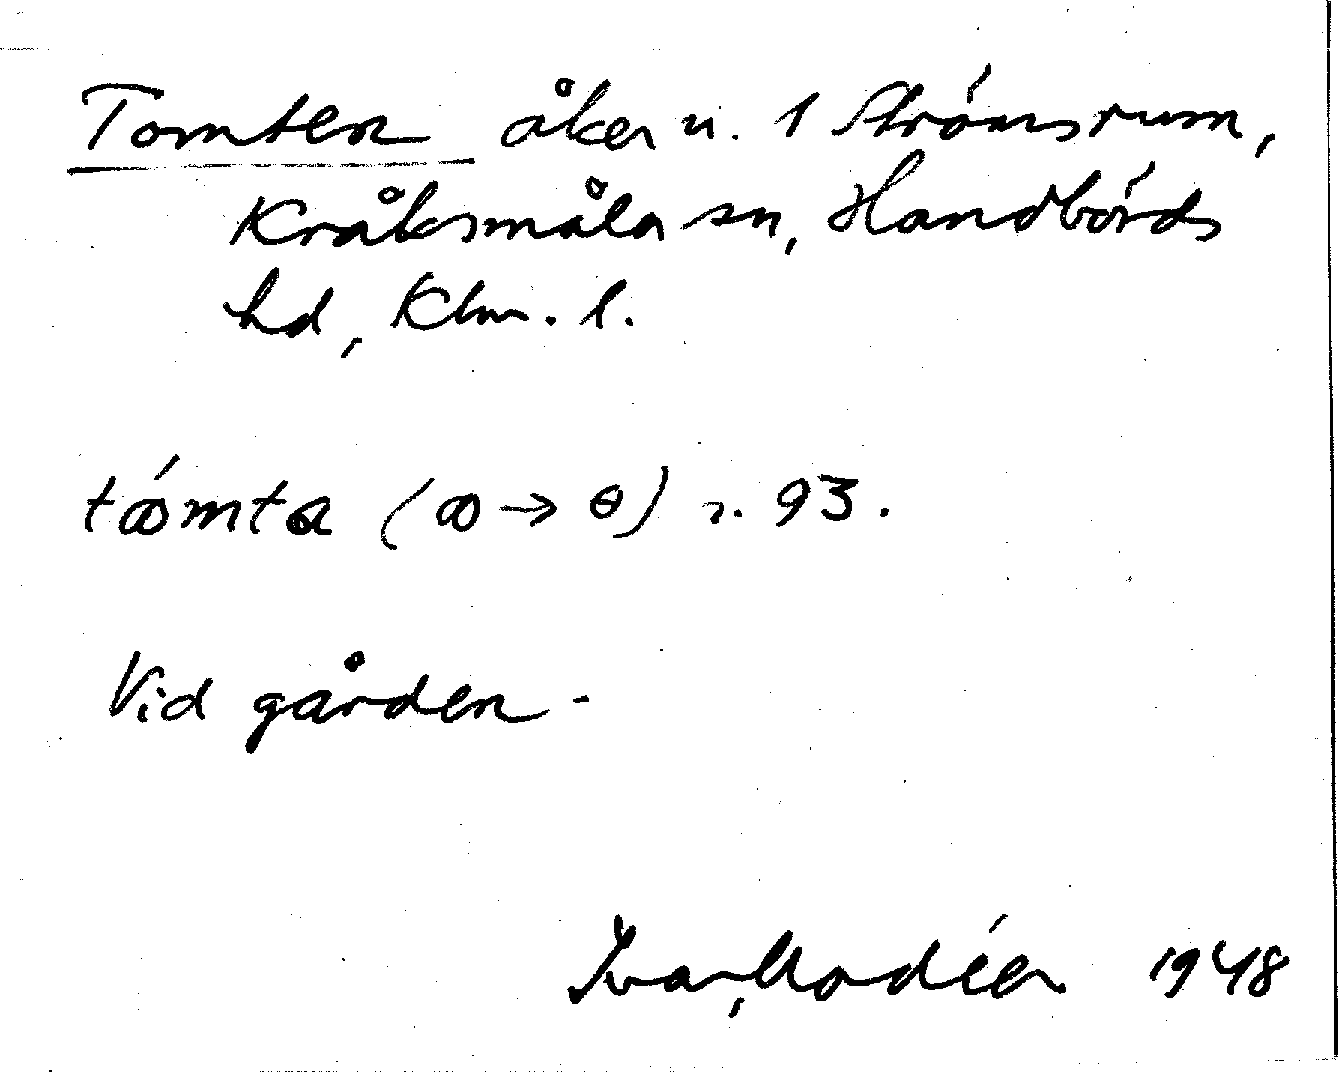 Tomten åker u. 1 Strömsrum,
Kråksmåla sn, Handbörds
hd, Klm. l.
tꝏ́mta (ꝏ → ɵ) n. 93.
Vid gården -
Ivar Modéer 1948